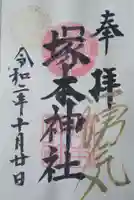 奉拝
勇気
塚本神社
令和二年十月廿日